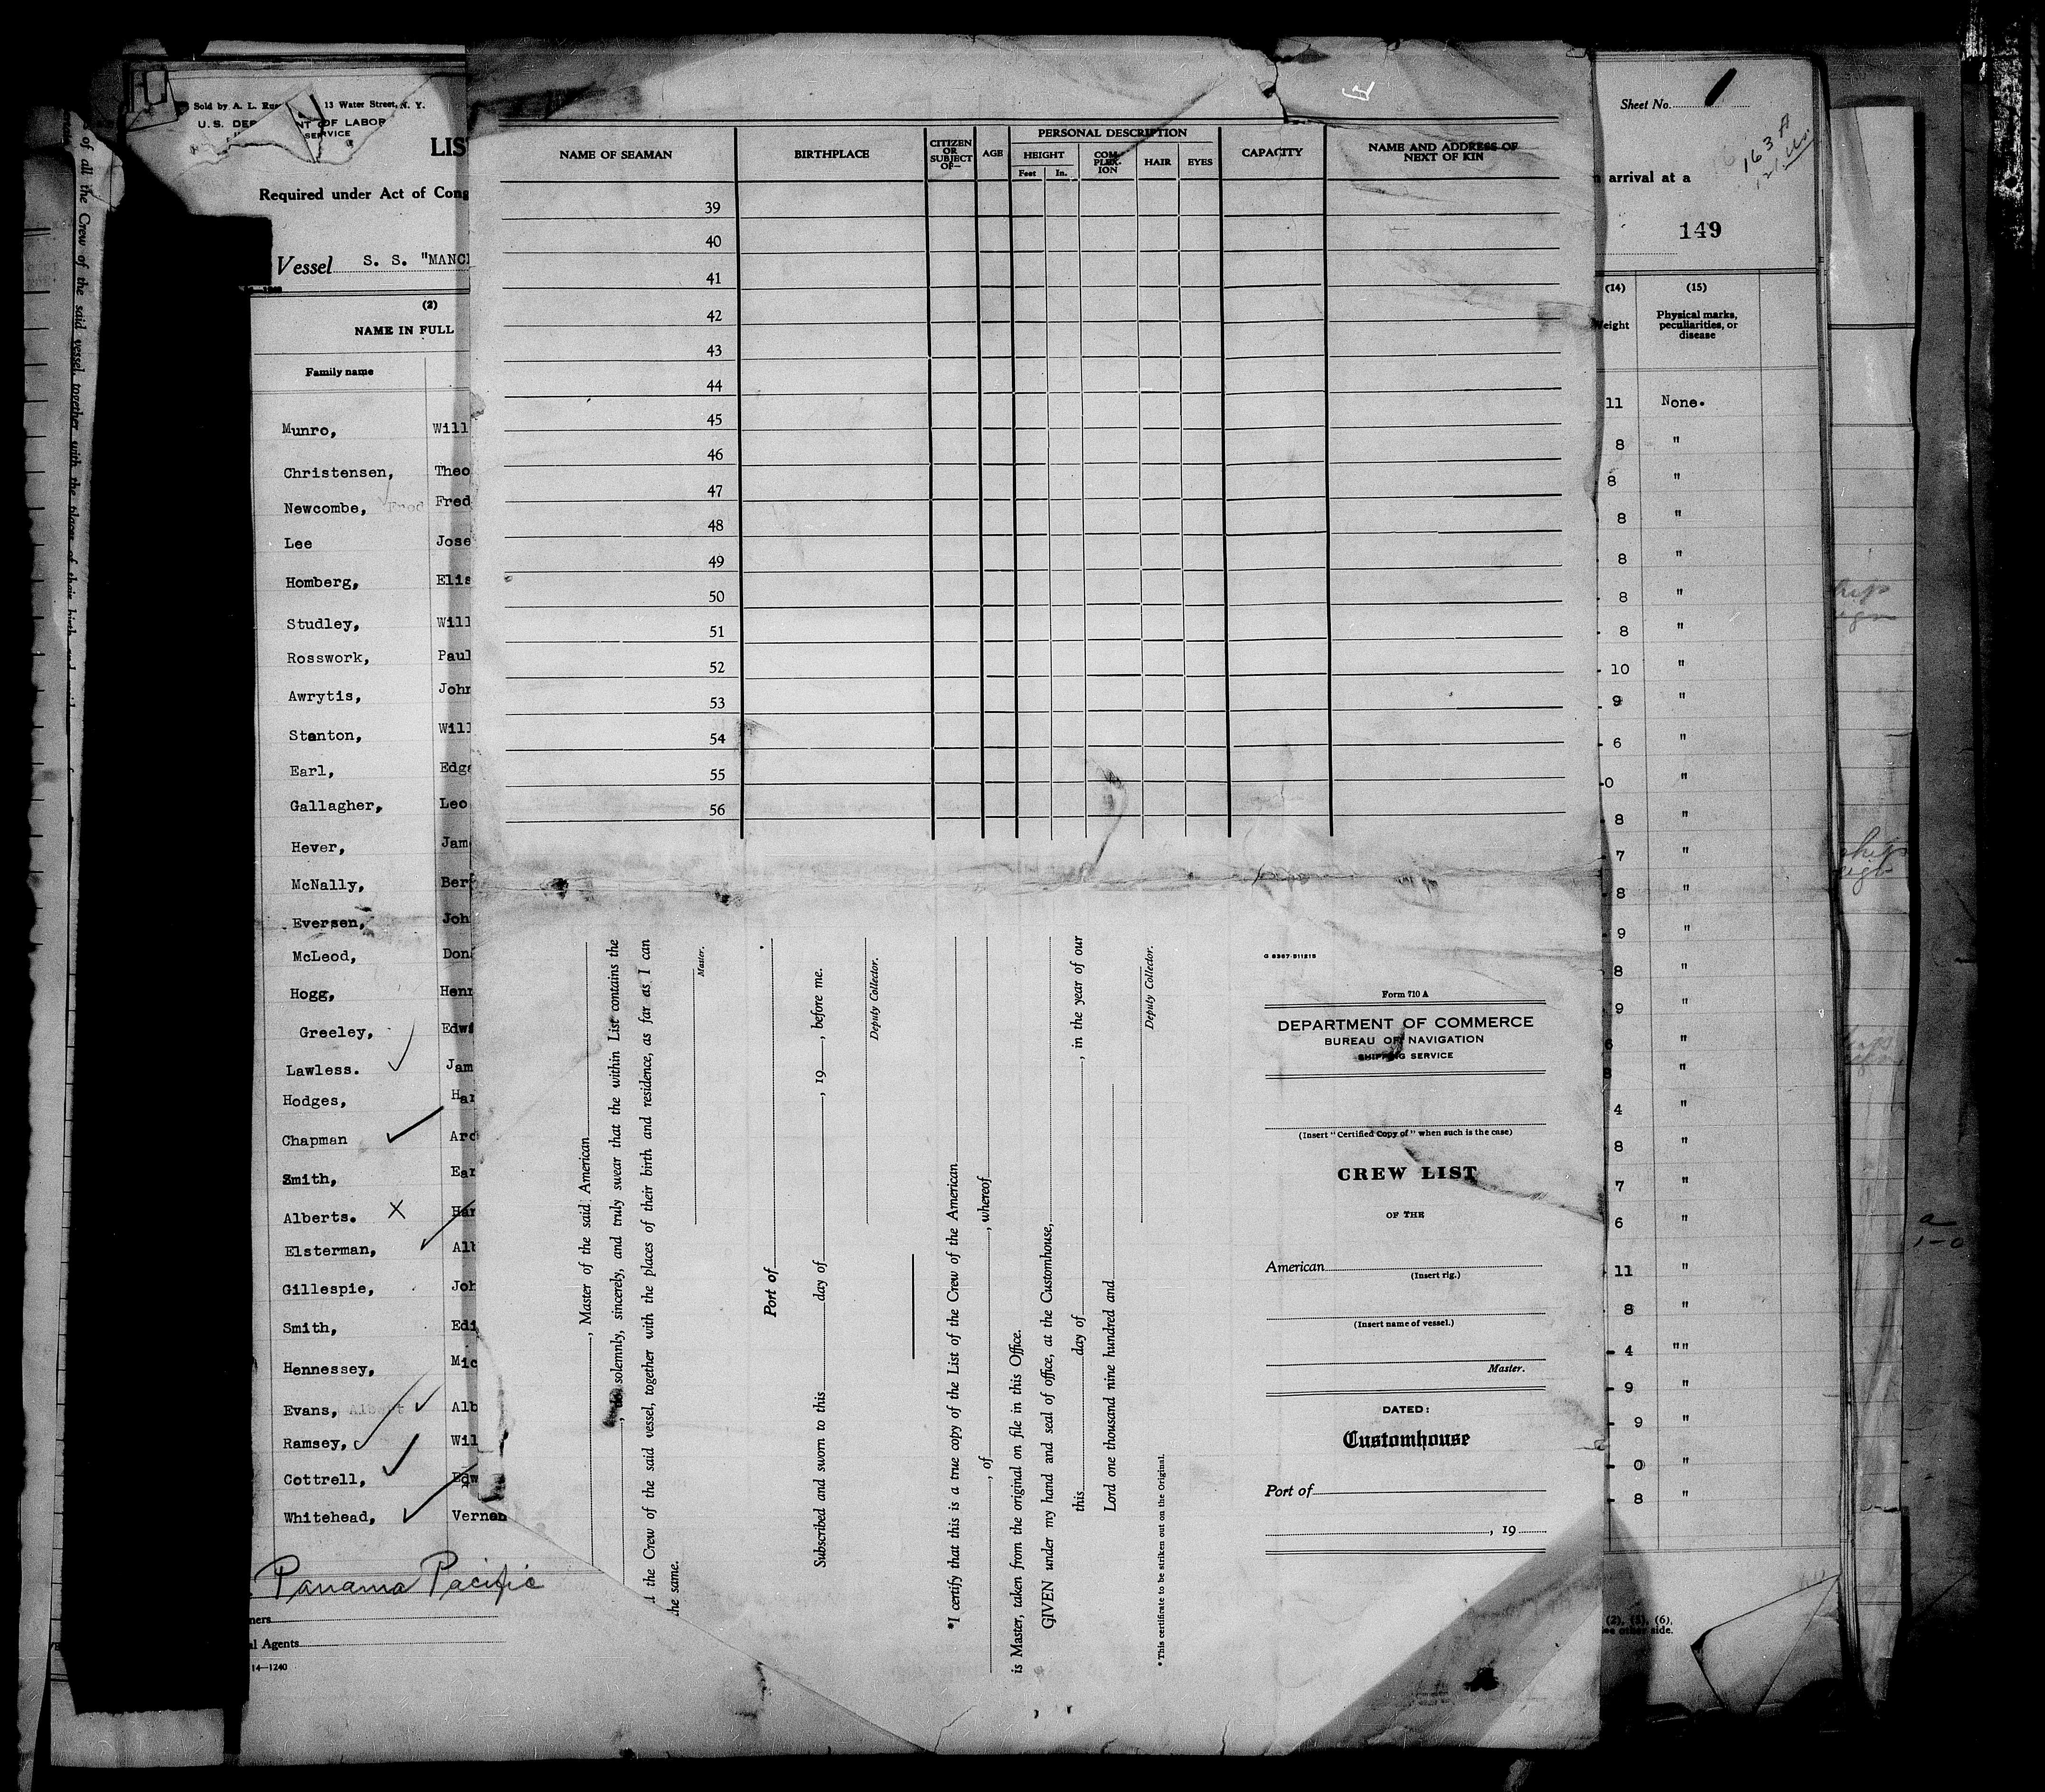 Sold by A. L. Rus 13 Water Street, N. Y.
U. S. DEP NT OF LABOR
SERVICE
LIS
Required under Act of Cong
Vessel S. S. "MANCH
(2)
NAME IN FULL
Family name
Munro, Will
Christensen, Theo
Newcombe, Fred Fred
Lee Jose
Homberg, Elis
Studley, Will
Rosswork, Paul
Awrytis, John
Stanton, Will
Earl, Edga
Gallagher, Leo
Hever, Jam
McNally, Ber
Eversen, Joh
McLeod, Don
Hogg, Henr
Greeley, Edwi
Lawless. Jam
Hodges, Har
Chapman Arc
Smith, Ear
Alberts. X Har
Elsterman, Alb
Gillespie, Joh
Smith, Edi
Hennessey, Mic
Evans, Albert Alb
Ramsey, Wil
Cottrell, Edw
Whitehead, Vernon
Panama Pacific
ners
al Agents
14—1240
of all the Crew of the said vessel, together with the places of their birth
NAME OF SEAMAN
BIRTHPLACE
CITIZEN OR SUBJECT OF—
AGE
PERSONAL DESCRIPTION
HEIGHT
Feet In.
COM-PLEX-ION
HAIR
EYES
CAPACITY
NAME AND ADDRESS OF NEXT OF KIN
39
40
41
42
43
44
45
46
47
48
49
50
51
52
53
54
55
56
, Master of the said American
, do solemnly, sincerely, and truly swear that the within List contains the
l the Crew of the said vessel, together with the places of their birth and residence, as far as I can
he same.
Master.
Port of
Subscribed and sworn to this day of , 19 , before me.
Deputy Collector.
*I certify that this is a true copy of the List of the Crew of the American
, of , whereof
is Master, taken from the original on file in this Office.
GIVEN under my hand and seal of office, at the Customhouse,
this day of , in the year of our
Lord one thousand nine hundred and
Deputy Collector.
*This certificate to be striken out on the Original.
Form 710 A
DEPARTMENT OF COMMERCE
BUREAU OF NAVIGATION
SHIPPING SERVICE
(Insert "Certified Copy of" when such is the case)
CREW LIST
OF THE
American
(Insert rig.)
(Insert name of vessel.)
Master.
DATED:
Customhouse
Port of
, 19
Sheet No. 1
163 A
n arrival at a
149
(14) (15)
Weight Physical marks, peculiarities, or disease
11 None.
8 "
8 "
8 "
8 "
8 "
8 "
10 "
9 "
6 "
0 "
8 "
7 "
8 "
9 "
8 "
9 "
6 "
8 "
4 "
8 "
7 "
6 "
11 "
8 "
4 ""
9 "
9 "
0 "
8 "
(2), (5), (6),
see other side.